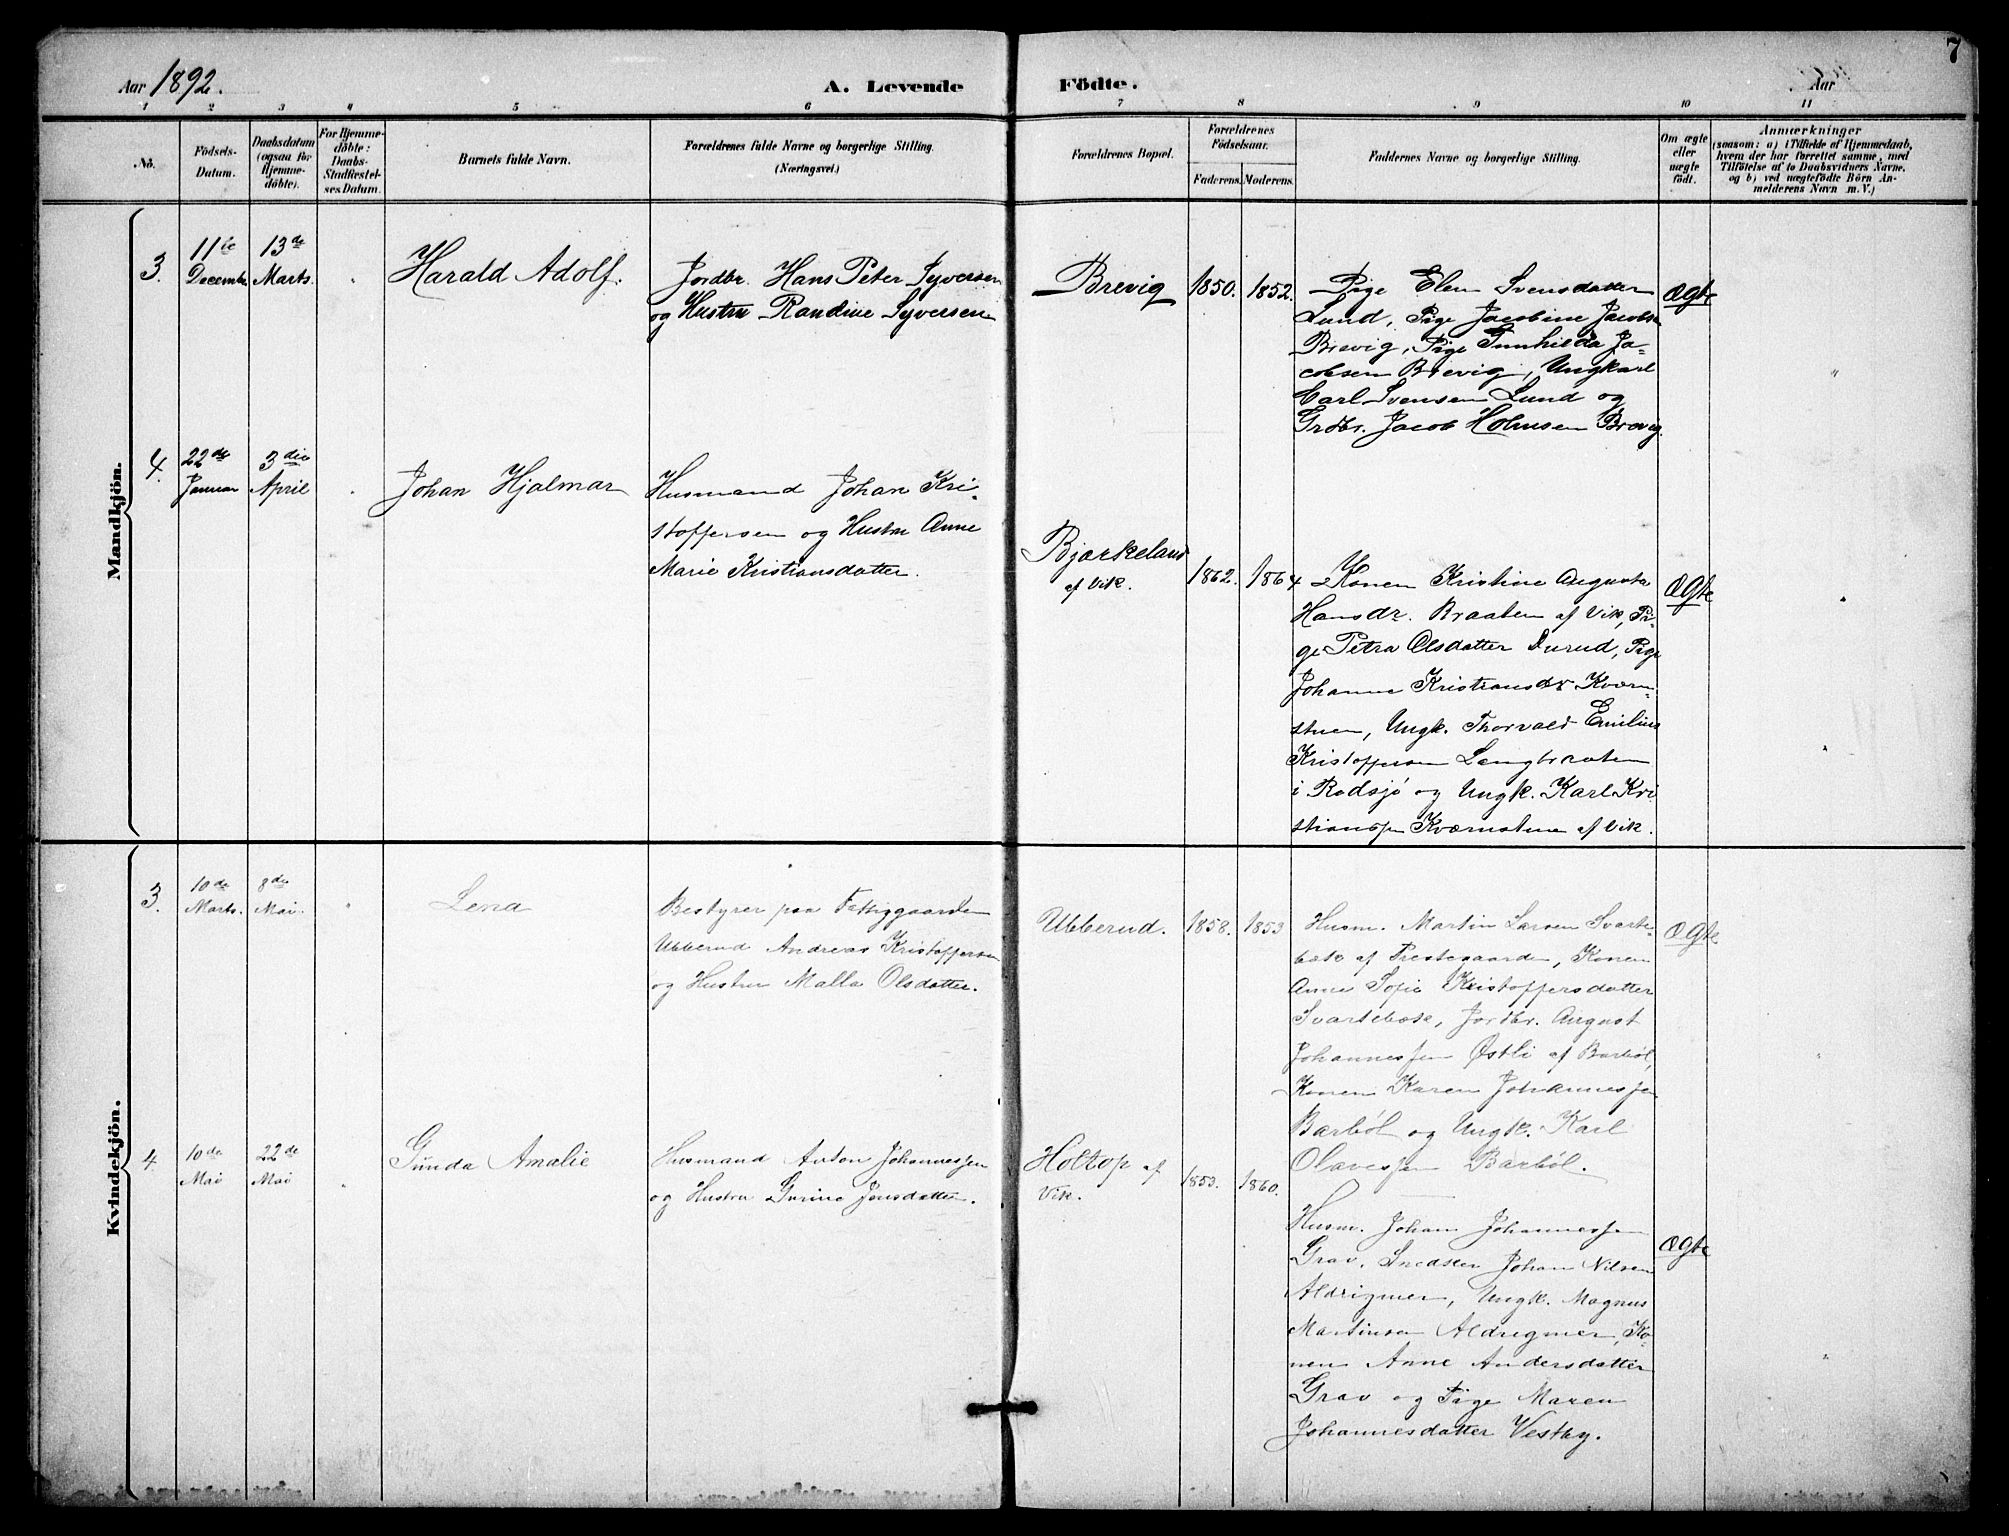 7
Aar 1892.
A. Levende Födte.
Aar
1 2 3 4 5 6 7 8 9 10 11
No.
Födsels-
Datum.
Daabsdatum
(ogsaa for
Hjemme-
döbte).
For Hjemme-
döbte:
Daabs-
Stadfæstel-
ses Datum.
Barnets fulde Navn.
Forældrenes fulde Navne og borgerlige Stilling.
(Næringsvei.)
Forældrenes Bopæl.
Forældrenes
Födselsaar.
Faderens. Moderens.
Faddernes Navne og borgerlige Stilling.
Om ægte
eller
uægte
födt.
Anmærkninger
(saasom: a) i Tilfælde af Hjemmedaab,
hvem der har forrettet samme, med
Tilföielse af to Daabsvidners Navne,
og b) ved uægtefödte Börn An-
melderens Navn m. V.)
Mandkjön.
3.
11te
December
13de
Marts.
Harald Adolf.
Jordbr. Hans Peter Syversen
og Hustru Randine Syversen
Brevig
1850.
1852.
Pige Elen Svensdatter
Lund, Pige Jacobine Jacobsen
Brevig, Pige Gunhilda Ja-
cobsen Brevig, Ungkarl
Carl Svensen Lund og
Grdbr. Jacob Holmsen Brevig.
Ægte
4.
22de
Januar
3die
April
Johan Hjalmar
Husmand Johan Kri-
stoffersen og Hustru Anne
Marie Kristiansdatter.
Bjørkeland
af Vik.
1862.
1864
Konen Kristine Augusta
Hansdr. Braaten af Vik, Pi-
ge Petra Olsdatter Durud, Pige
Johanne Kristiansdr Kværn-
stuen, Ungk. Thorvald Emilius
Kristoffersen Langbraaten
i Rødsjø og Ungk. Karl Kri
stiansen Kværnstuen af Vik.
Ægte
Kvindekjön.
3.
10de
Marts.
8de
Mai.
Lena
Bestyrer paa Fattiggaarden
Ubberud Andreas Kristoffersen
og Hustru Malla Olsdatter.
Ubberud.
1858.
1853
Husm. Martin Larsen Svarte-
bæk af Prestegaarden, Konen
Anne Sofie Kristoffersdatter
Svartebæk, Jordbr. August
Johannessen Østli af Barbøl,
Konen Karen Johannessen
Barbøl og Ungk. Karl
Olavessen Barbøl.
Ægte
4.
10de
Mai
22de
Mai
Gunda Amalie
Husmand Anton Johannessen
og Hustru Gurine Jensdatter.
Holtop af
Vik.
1853.
1860.
Husm. Johan Johannessen
Grav, Snedker Johan Nilsen
Aldrigmer, Ungk. Magnus
Martinsen Aldrigmer, Ko-
nen Anne Andersdatter
Grav og Pige Maren
Johannesdatter Vestby.
Ægte